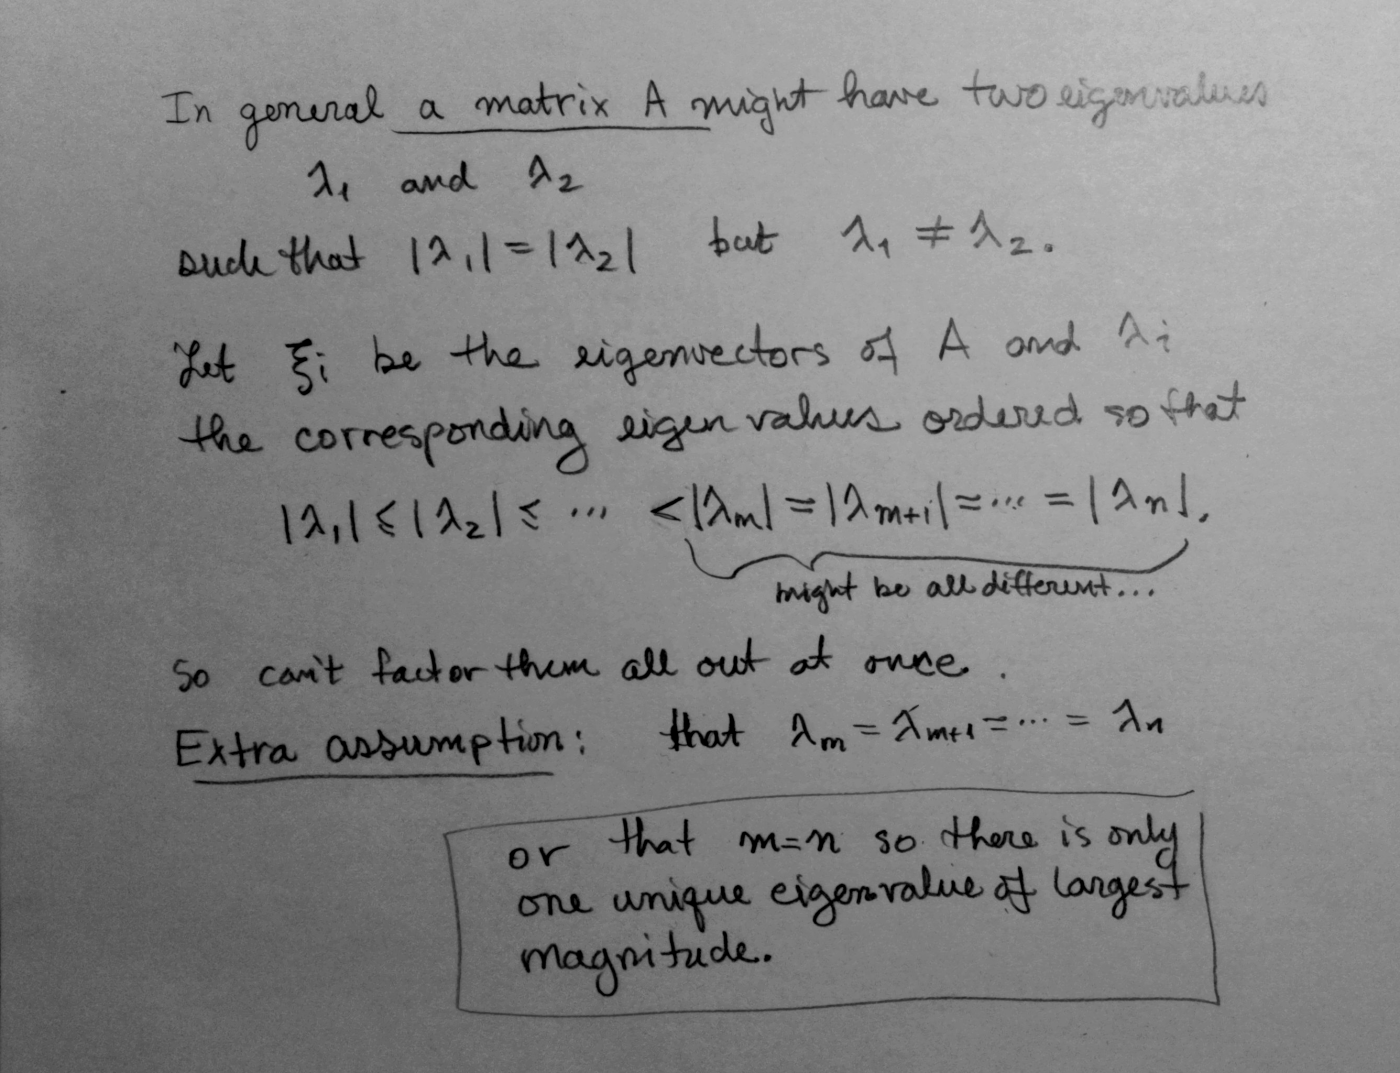 In general a matrix A might have two eigenvalues
λ₁ and λ₂
such that |λ₁| = |λ₂| but λ₁ ≠ λ₂.
Let ξᵢ be the eigenvectors of A and λᵢ
the corresponding eigen values ordered so that
|λ₁| ≤ |λ₂| ≤ ... < |λₘ| = |λₘ₊₁| = ... = |λₙ|.
might be all different...
So can't factor them all out at once.
Extra assumption: that λₘ = λₘ₊₁ = ... = λₙ
or that m=n so there is only
one unique eigenvalue of largest
magnitude.